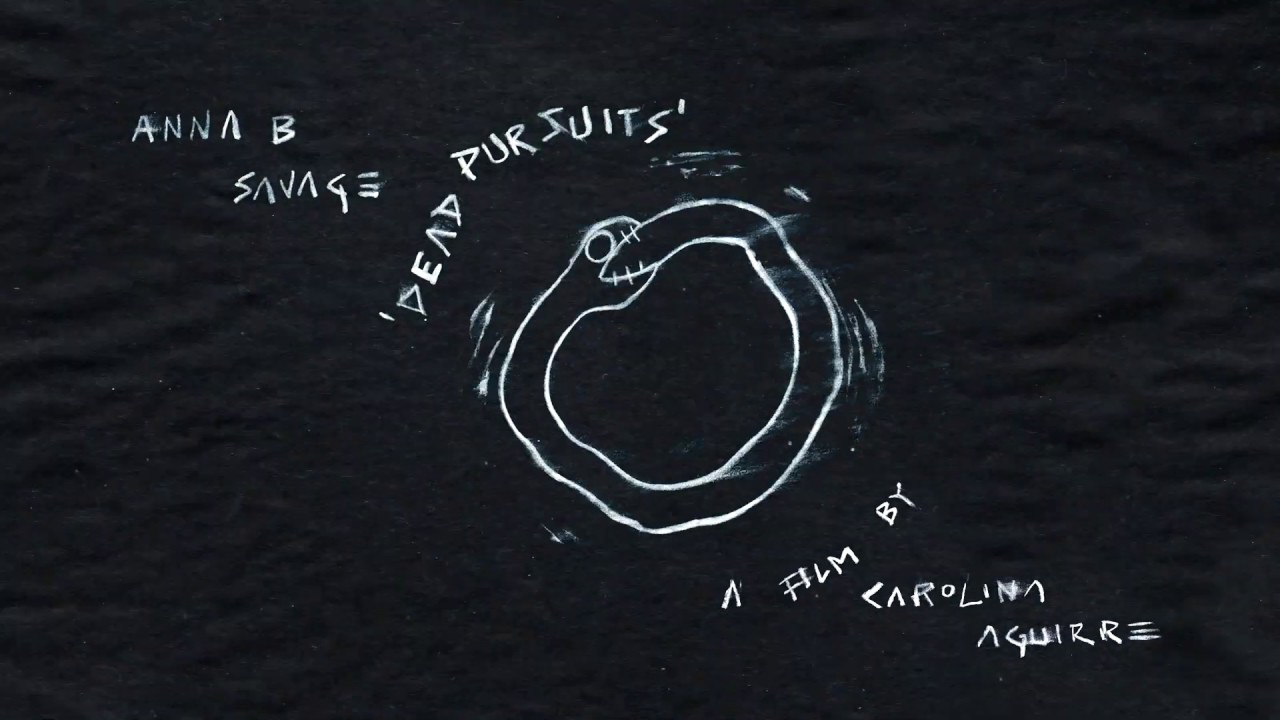 ANNA B
SAVAGE
'DEAD PURSUITS'
A FILM BY
CAROLINA
AGUIRRE